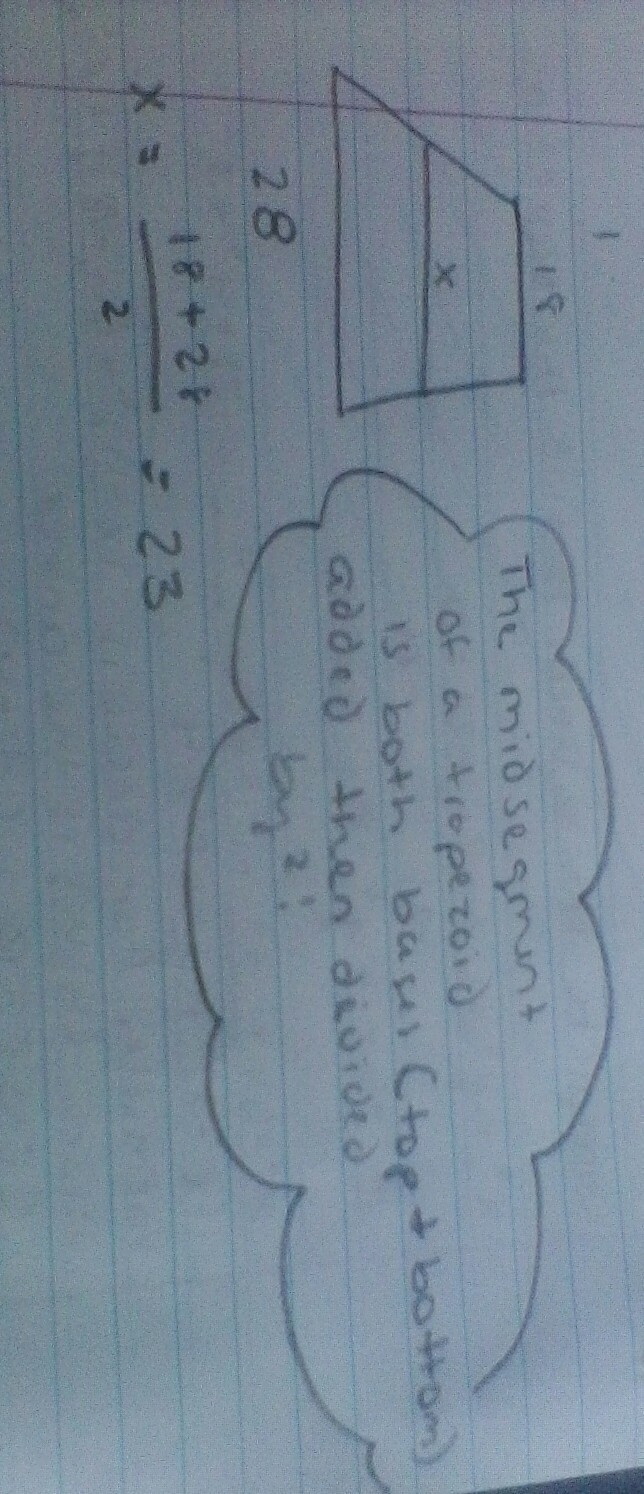 1
18
x
28
x = 18 + 28 / 2 = 23
The midsegment
of a trapezoid
is both bases (top + bottom)
added then divided
by 2!